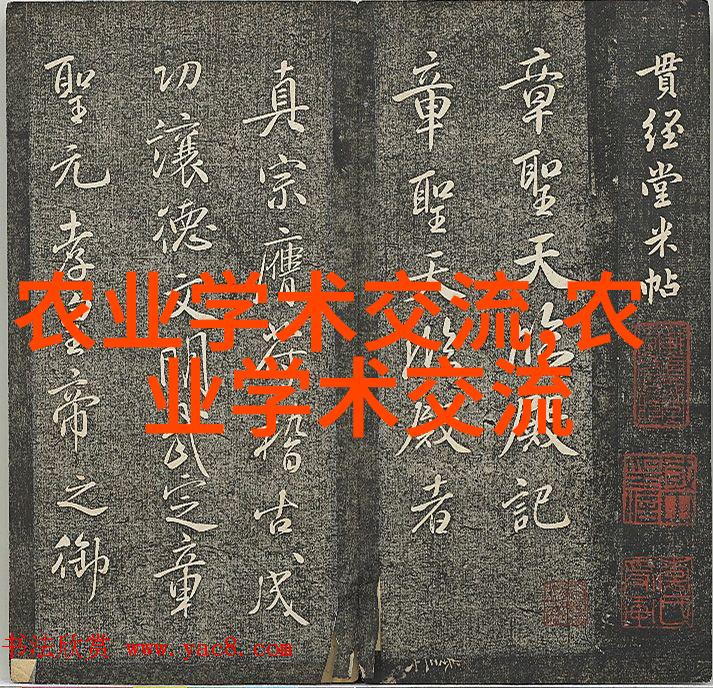 貫經堂米帖
章聖天臨殿記
章聖天臨殿者
真宗膺符稽古成
功讓德文明武定章
聖元孝皇帝之御
农业学术交流,农
业学术交流
书法欣赏 www.yac8.com